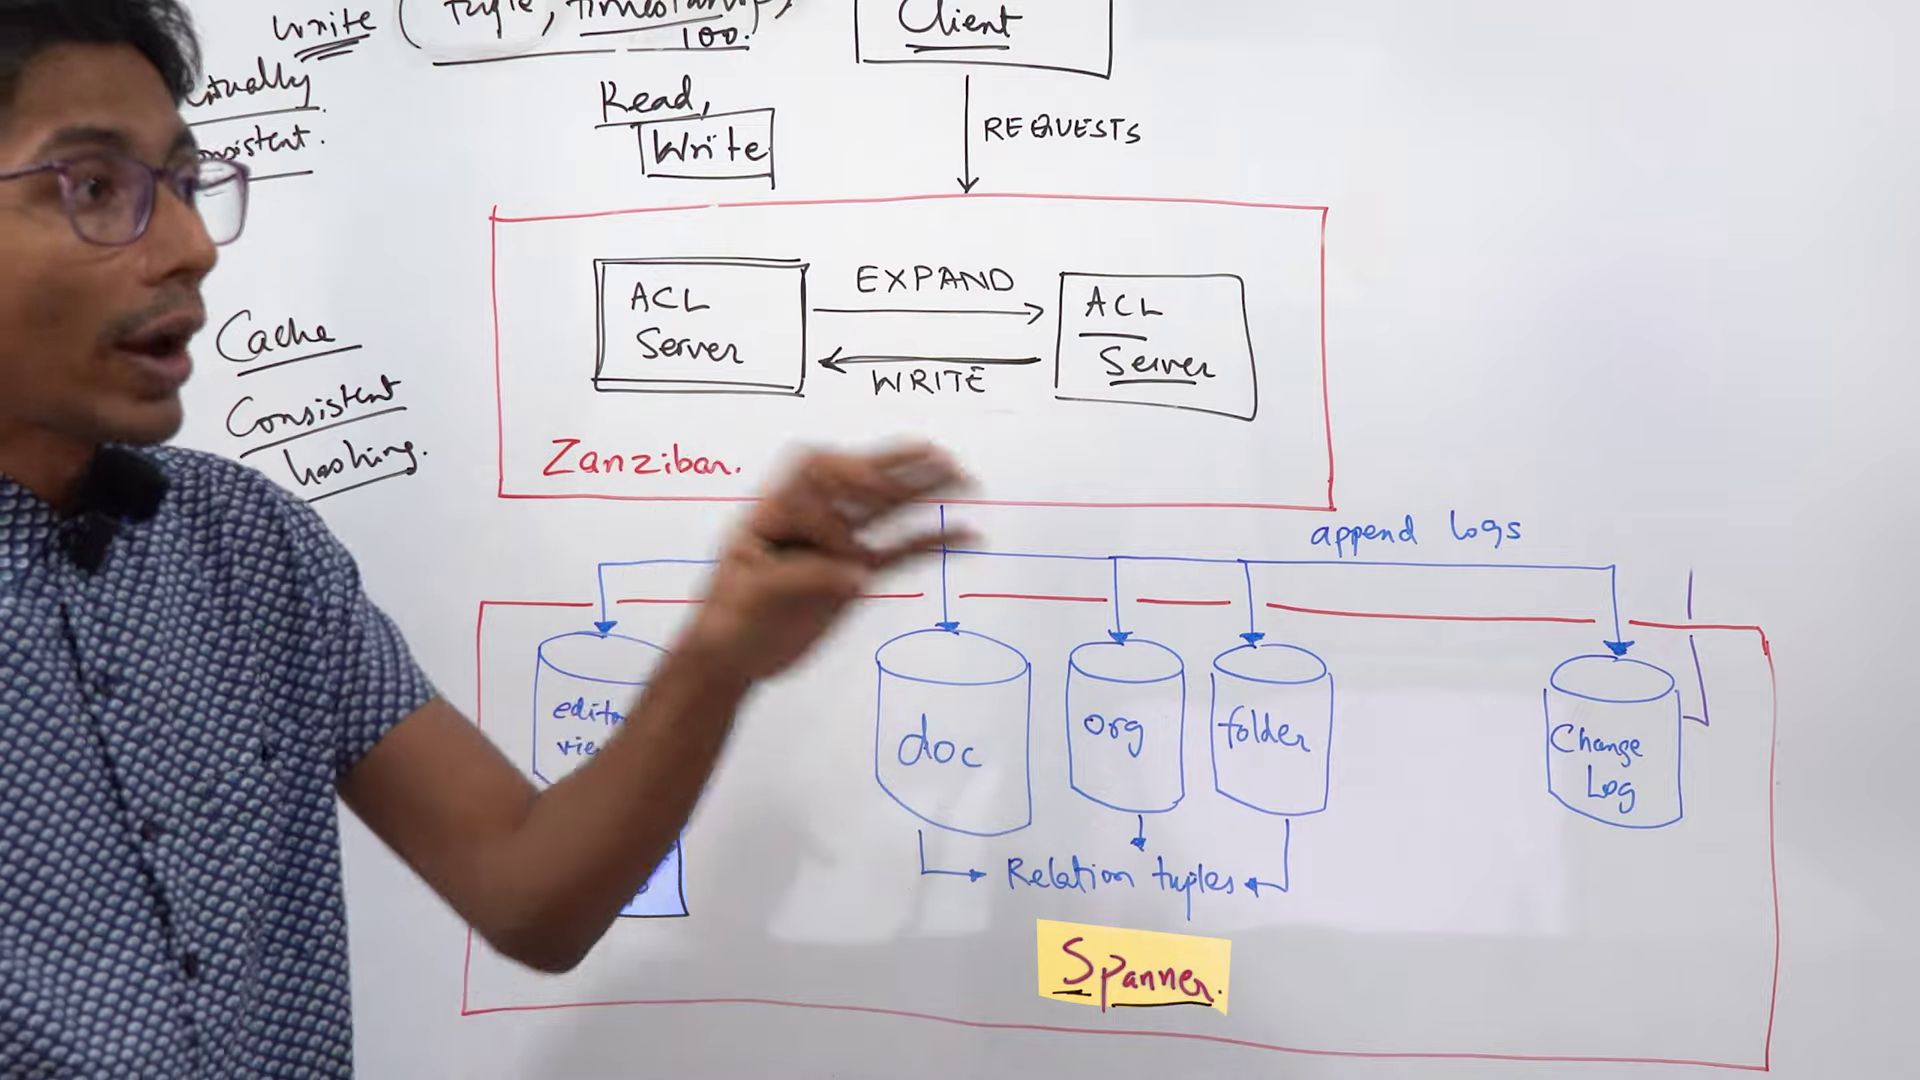 Write (tuple, timestamp),
100.
Client
Read,
Write
REQUESTS
ACL
Server
EXPAND
WRITE
ACL
Server
Cache
Consistent
hashing.
Zanzibar.
append logs
doc
org
folder
Change
Log
Relation tuples
Spanner.